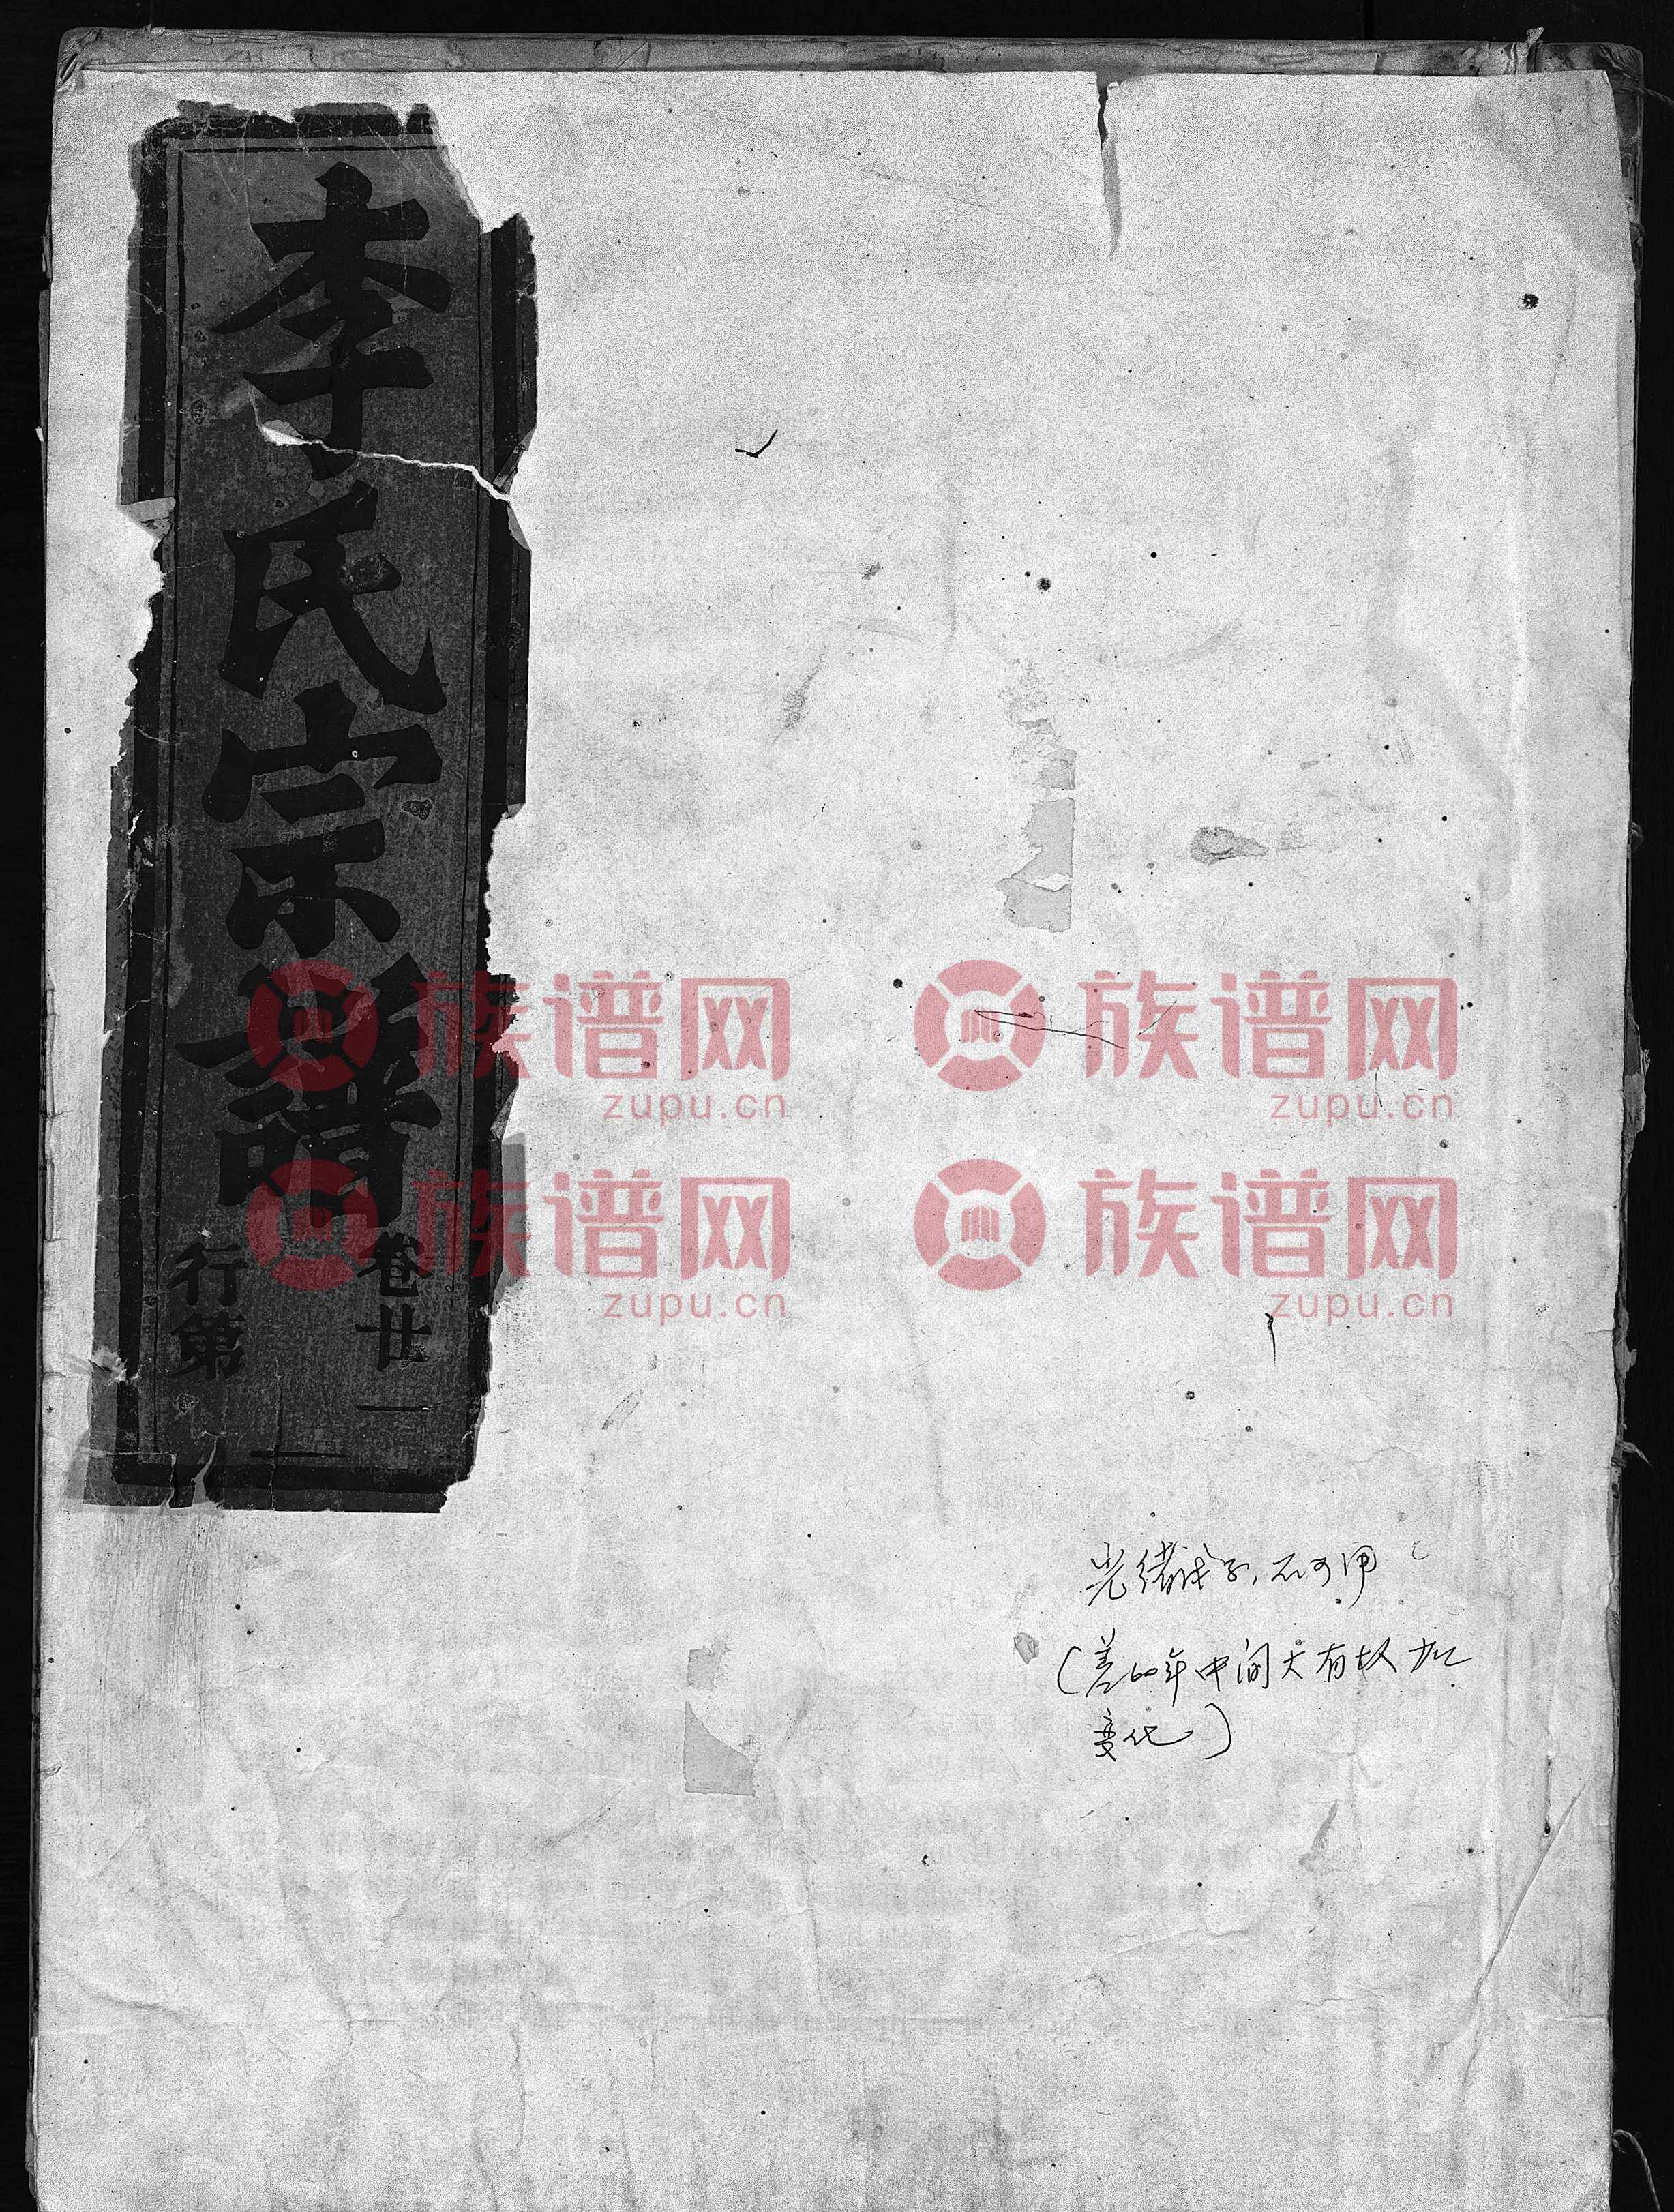 李氏宗譜
卷廿一
行第
族谱网
zupu.cn
族谱网
zupu.cn
族谱网
zupu.cn
族谱网
zupu.cn
光绪戊子，不可用
（差60年中间大有故加
变化）